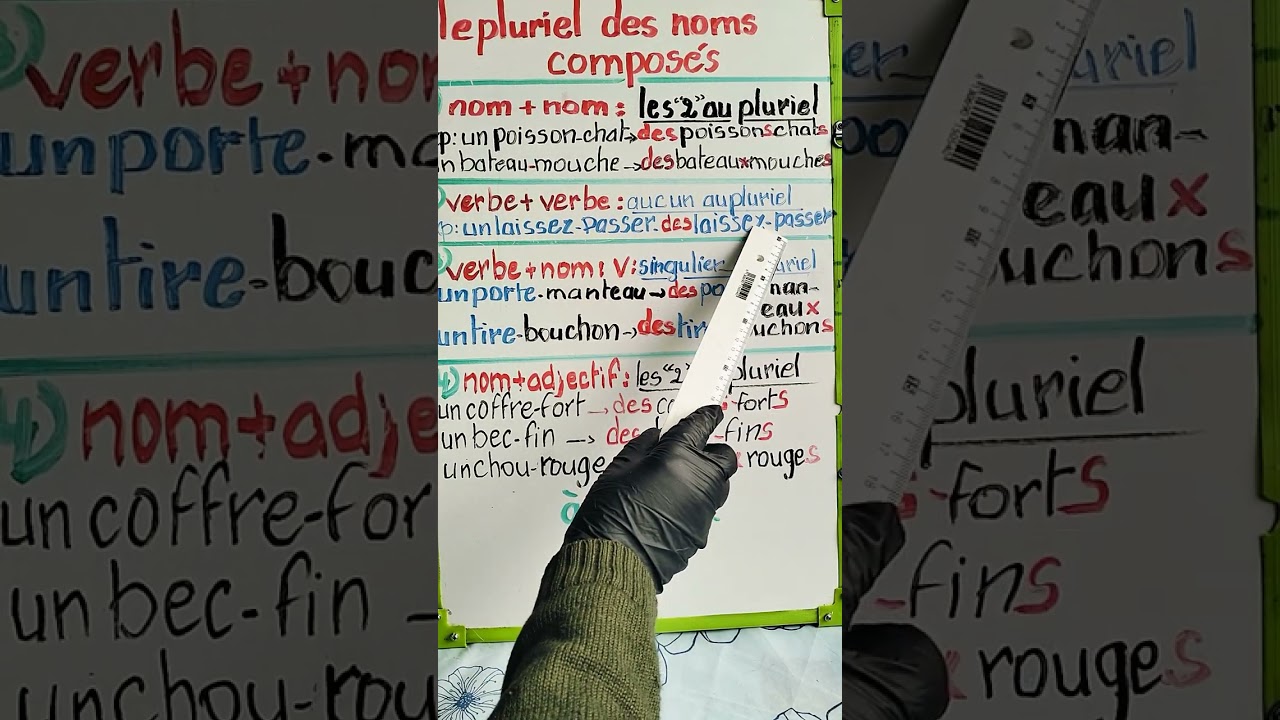 le pluriel des noms
composés
nom + nom : les "2" au pluriel
p: un poisson-chat → des poissons chats
n bateau-mouche → des bateaux mouches
verbe + verbe : aucun au pluriel
p: un laissez-passer. des laissez-passer
verbe + nom : V: singulier uriel
un porte-manteau → des po nan-
eaux
un tire-bouchon → des tir uchons
4) nom + adjectif : les "2" pluriel
un coffre-fort → des co s-forts
un bec-fin → des -fins
un chou-rouge x rouges
à